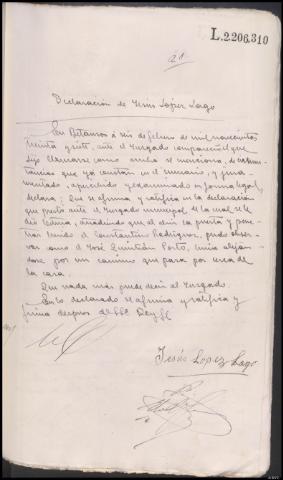 L.2.206.310
21
Declaración de Jesus López Lago
En Betanzos á seis de febrero de mil novecientos
treinta y siete, ante el Juzgado compareció el que
dijo llamarse como arriba se menciona, de circuns-
tancias que ya constan en el sumario, y jura-
mentado, apercibido y examinado en forma legal
declara: Que se afirma y ratifica en la declaración
que prestó ante el Juzgado municipal de la cual se le
dió lectura, añadiendo que al abrir la puerta y
tras Constantino Rodríguez, pudo obser-
var como el José Quintián Porto, huía aleján-
dose por un camino que pasa por cerca de
la casa.
Que nada más puede decir al Juzgado.
Leído lo declarado se afirma y ratifica y
firma después de S.Sª. Doy fé
Jesús Lopez Lago